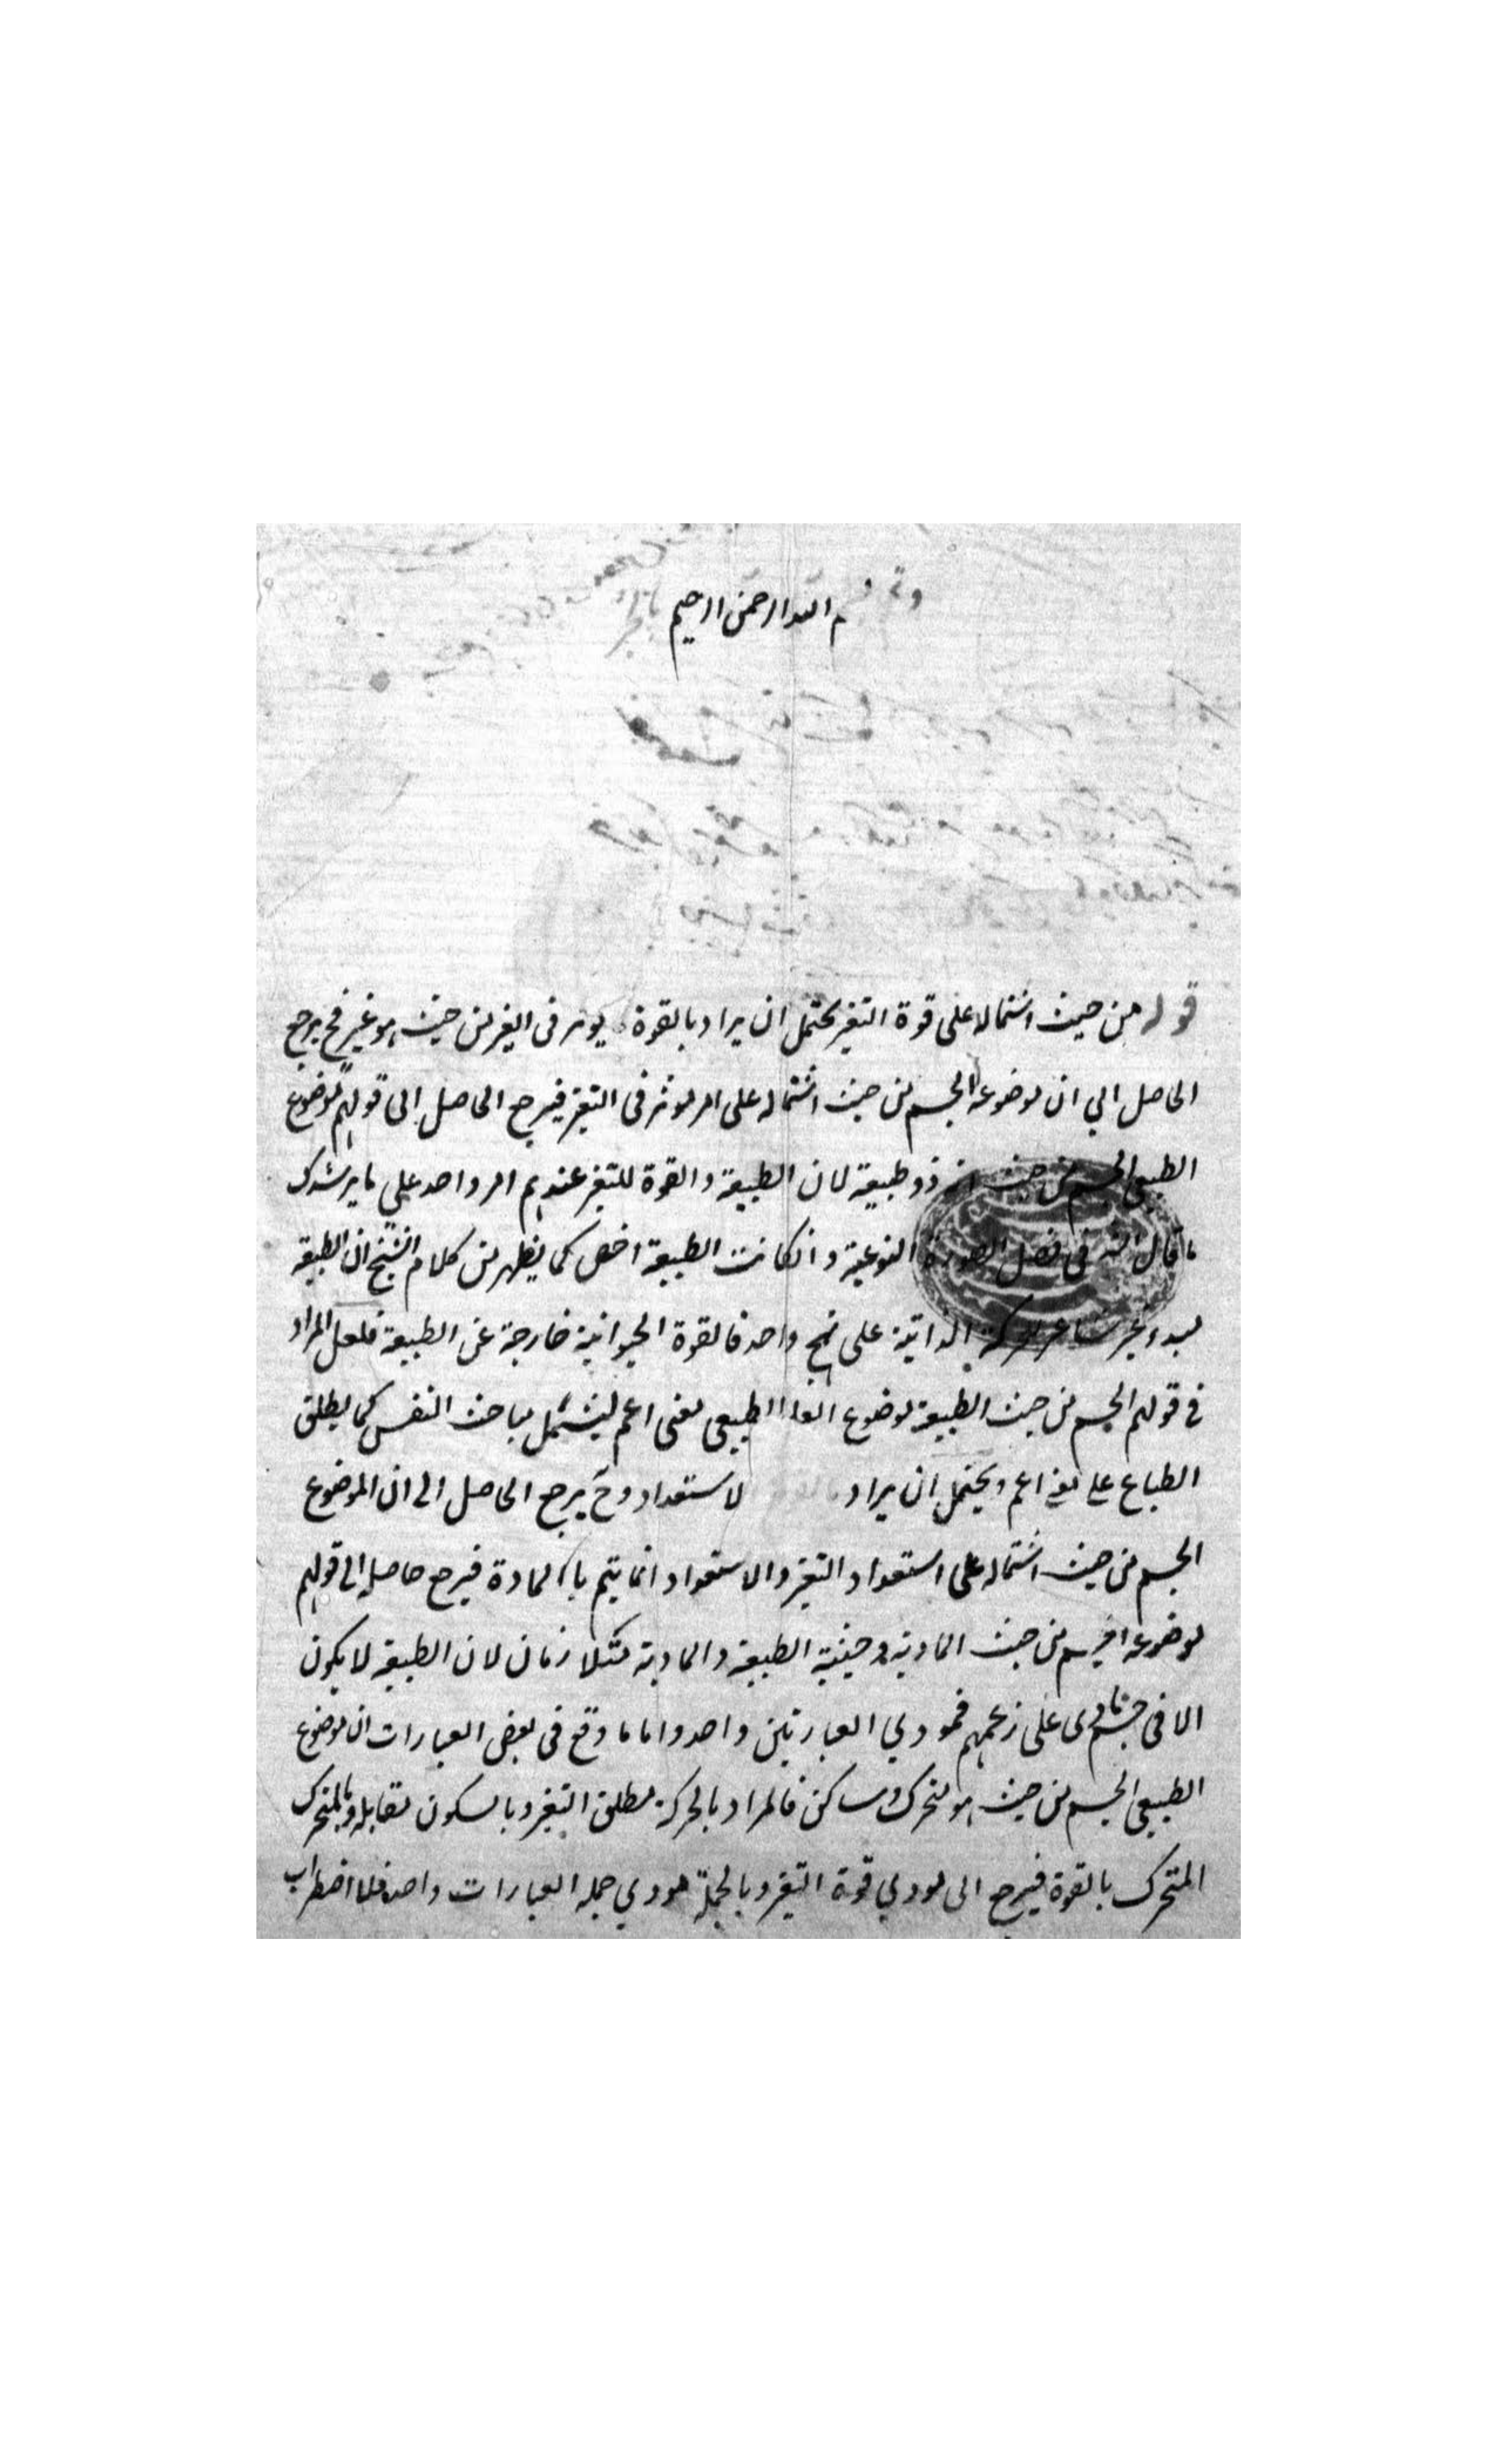 م الله الرحمن الرحيم
قوله من حيث اشتماله على قوة التغير يحتمل ان يراد بالقوة يوثر فى الغير من حيث هو غير فح يرجع
الحاصل الي ان موضوعه الجسم من حيث اشتماله على امر موثر فى التغير فيرجع الحاصل الى قولهم موضوع
الطبعى الجسم من حيث انه ذو طبيعة لان الطبيعة والقوة للتغير عندهم امر واحد علي ما يرشدك
ما قال فى فصل الصورة النوعية وانكانت الطبيعة اخص كما يظهر من كلام الشيخ ان الطبيعة
مبدء غير شاعر لحركة الذاتية على نهج واحد فالقوة الحيوانية خارجة عن الطبيعة فلعل المراد
فى قولهم الجسم من حيث الطبيعة موضوع الطبيعى معنى اعم ليشمل مباحث النفس كما يطلق
الطباع على معنى اعم ويحتمل ان يراد لاستعداد وح يرجع الحاصل الى ان الموضوع
الجسم من حيث اشتماله على استعداد التغير والاستعداد انما يتم بالمادة فيرجع حاصله الى قولهم
موضوعه الجسم من حيث المادية وحيثية الطبيعة والمادية متلازمان لان الطبيعة لا يكون
الا فى جسم مادى على زعمهم فمودي العبارتين واحد واما ما وقع فى بعض العبارات ان موضوع
الطبيعى الجسم من حيث هو متحرك وساكن فالمراد بالحركة مطلق التغير وبالسكون مقابله وبالمتحرك
المتحرك بالقوة فيرجع الى مودي قوة التغير وبالجملة مودي جملة العبارات واحد فلا اضطراب